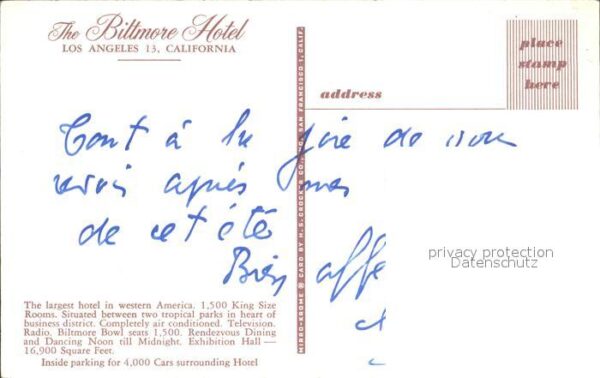 The Biltmore Hotel
LOS ANGELES 13, CALIFORNIA
place
stamp
here
address
MIRRO-KROME ® CARD BY H. S. CROCKER CO., INC. SAN FRANCISCO 1, CALIF.
Tout à la joie de vous
revoir après
de cet été
Bien affe
et
privacy protection
Datenschutz
The largest hotel in western America. 1,500 King Size
Rooms. Situated between two tropical parks in heart of
business district. Completely air conditioned. Television.
Radio. Biltmore Bowl seats 1,500. Rendezvous Dining
and Dancing Noon till Midnight. Exhibition Hall —
16,900 Square Feet.
Inside parking for 4,000 Cars surrounding Hotel